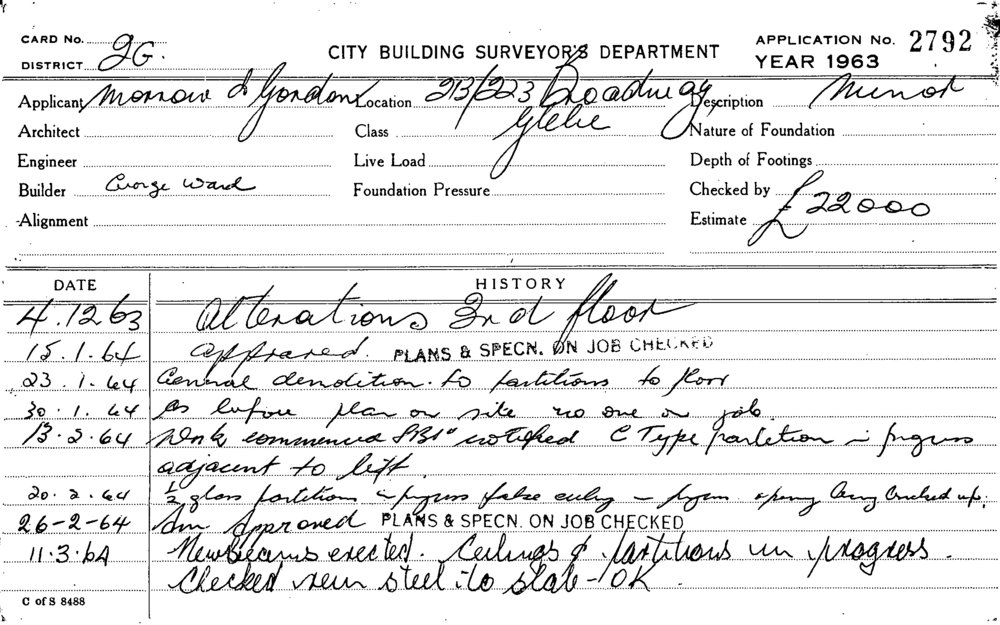 CARD No. 2G.
DISTRICT
CITY BUILDING SURVEYOR'S DEPARTMENT
APPLICATION No. 2792
YEAR 1963
Applicant Morrow & Gordon Location 213/223 Broadway Description Minor
Architect Class Glebe Nature of Foundation
Engineer Live Load Depth of Footings
Builder George Ward Foundation Pressure Checked by
Alignment Estimate £22000
DATE HISTORY
4.12.63 Alterations 3rd floor
15.1.64 Approved. PLANS & SPECN. ON JOB CHECKED
23.1.64 General demolition to partitions to floor
30.1.64 As before plan on site no one on job.
13.2.64 Work commenced notified C Type partition in progress
adjacent to lift.
20.2.64 ½ glass partition in progress false ceiling opening being bricked up.
26-2-64 Am Approved PLANS & SPECN. ON JOB CHECKED
11.3.64 New beams erected. Ceilings & partitions in progress.
Checked new steel to slab - OK
C of S 8488